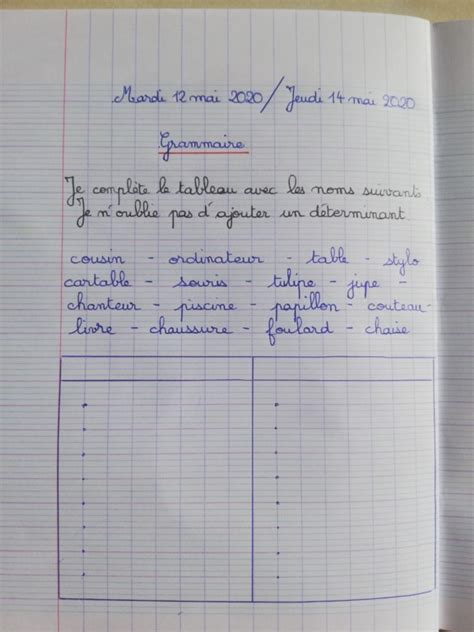 Mardi 12 mai 2020 / Jeudi 14 mai 2020
Grammaire
Je complète le tableau avec les noms suivants
Je n'oublie pas d'ajouter un déterminant.
cousin - ordinateur - table - stylo
cartable - souris - tulipe - jupe -
chanteur - piscine - papillon - couteau -
livre - chaussure - foulard - chaise